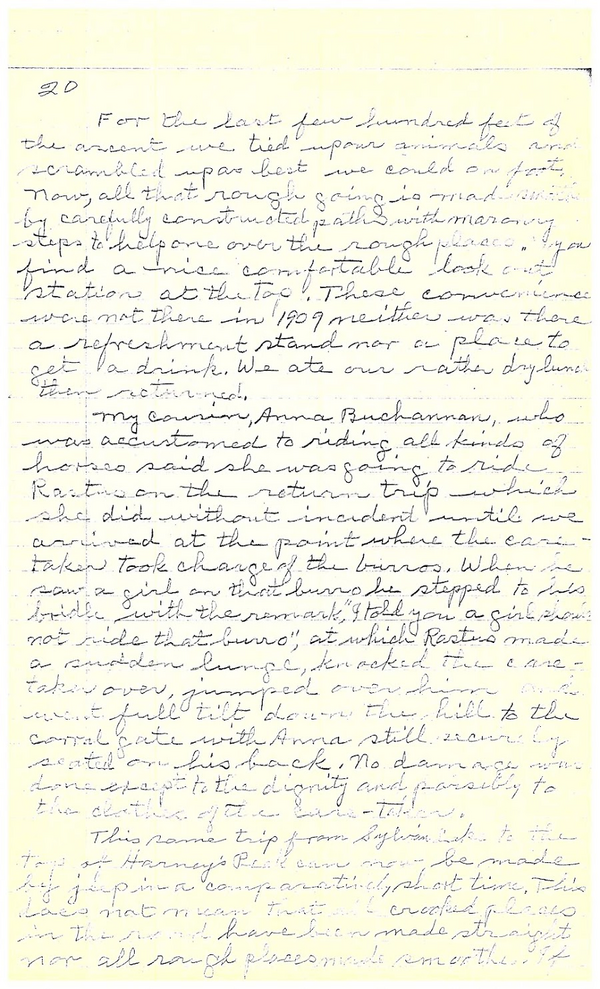 20
For the last few hundred feet of
the ascent we tied upour animals and
scrambled upas best we could on foot.
Now, all that rough going is made
by carefully constructed paths with masonry
steps to help one over the rough places. You
find a nice comfortable look out
station at the top. These convenience
were not there in 1909 neither was there
a refreshment stand nor a place to
get a drink. We ate our rather dry lunch
then returned.
My cousin, Anna Buchannan, who
was accustomed to riding all kinds of
horses said she was going to ride
Rastus on the return trip which
she did without incident until we
arrived at the point where the care-
taker took charge of the burros. When he
saw a girl on that burro he stepped to his
bridle with the remark, "I told you a girl should
not ride that burro", at which Rastus made
a sudden lunge, knocked the care-
taker over, jumped over him and
went full tilt down the hill to the
corral gate with Anna still securely
seated on his back. No damage was
done except to the dignity and possibly to
the clothes of the care-taker.
This same trip from Sylvan Lake to the
top of Harney's Peak can now be made
by jeep in a comparatively short time. This
does not mean that all crooked places
in the road have been made straight
nor all rough places made smoothe. If